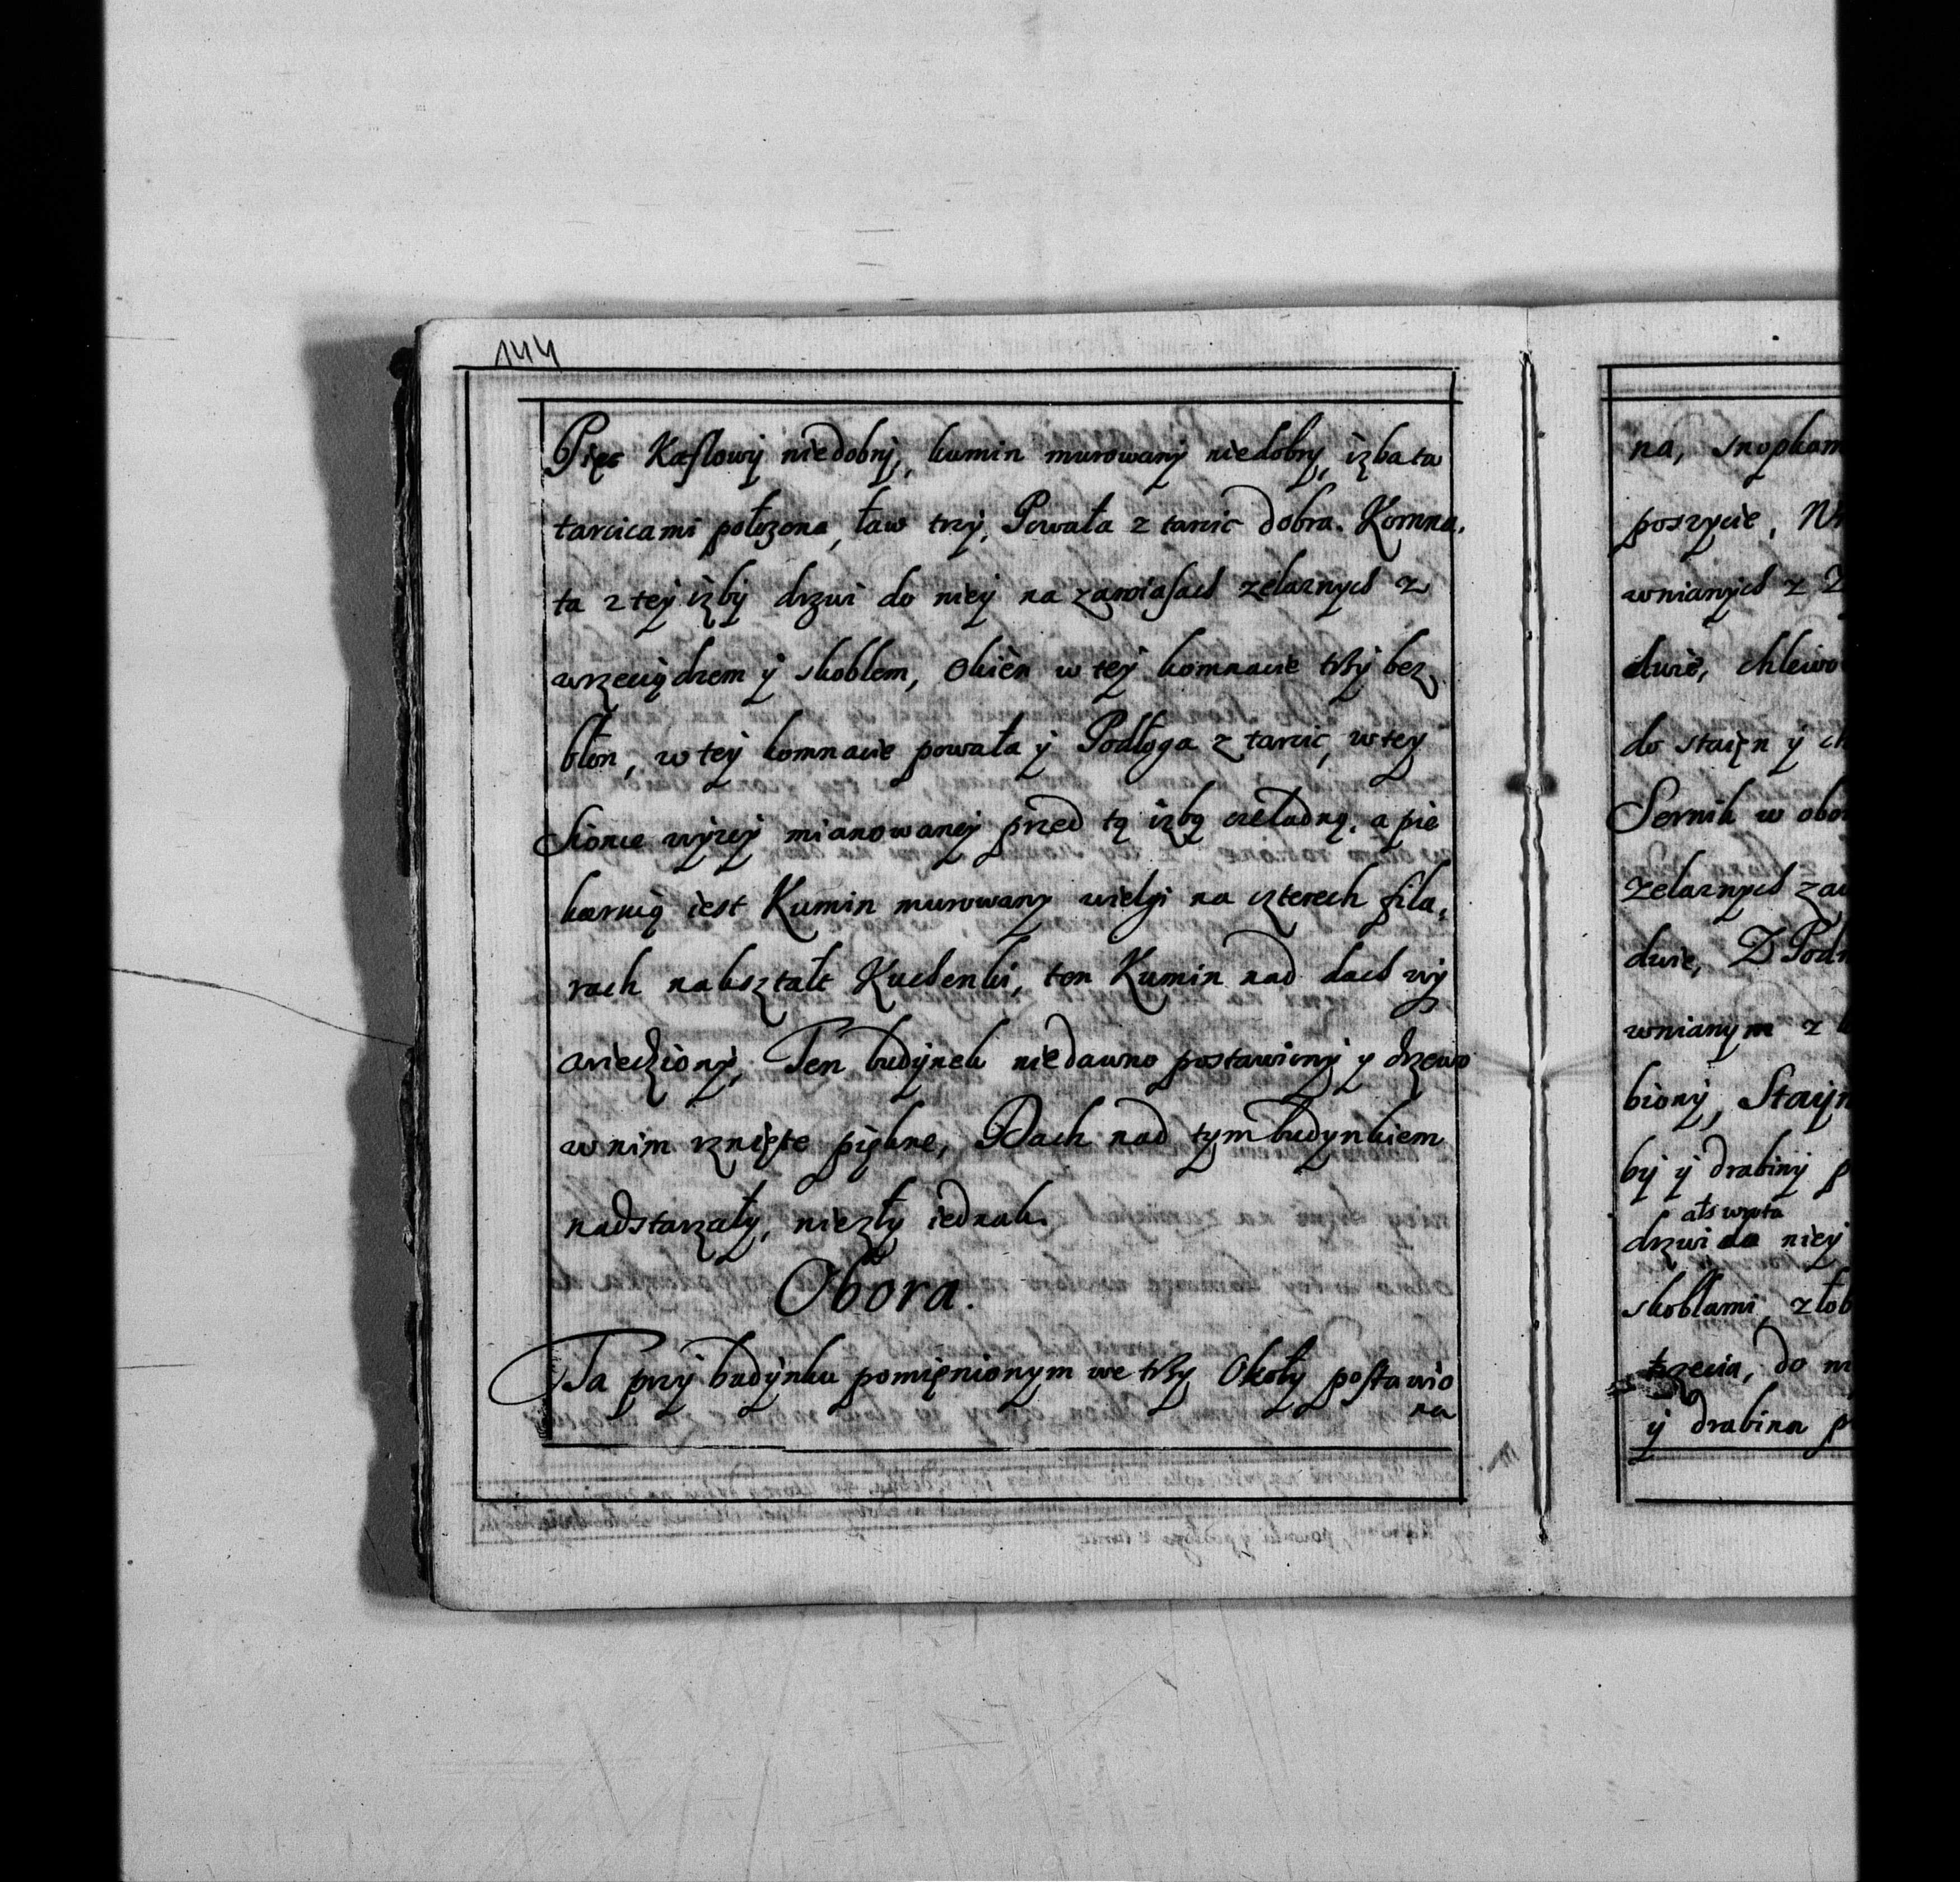 144
Piec Kaflowy niedobry, kumin murowany niedobry, izba ta
tarcicami położona, ław trzy, Powała z tarcic dobra. Komna,
ta z tey izby drzwi do niey na zawiasach zelaznych z
wrzeciądzem y skoblem, Okien w tey komnacie trzy bez
błon, w tey komnacie powała y Podłoga z tarcic, w tey
Sionce wyzey mianowaney przed tą izbą czeladną, a pie
karnią iest Kumin murowany wielgi na czterech fila,
rach nakształt Kuchenki, ten Kumin nad dach wy
wiedziony, Ten budynek niedawno postawiony y drzewo
w nim rznięte piękne, Dach nad tym budynkiem
nadstarzały, niezły iednak.
Obora.
Ta przy budynku pomienionym we trzy Okoły postawio
na
na, snopkam
poszycie,
wnianych z
dwie, chlewo
do staien y ch
Sernik w obo
zelaznych zaw
dwie, Z Podw
wnianym z
biony, Stayn
by y drabiny p
als wrota
drzwi do niey
skoblami, złob
trzecia, do n
y drabina p